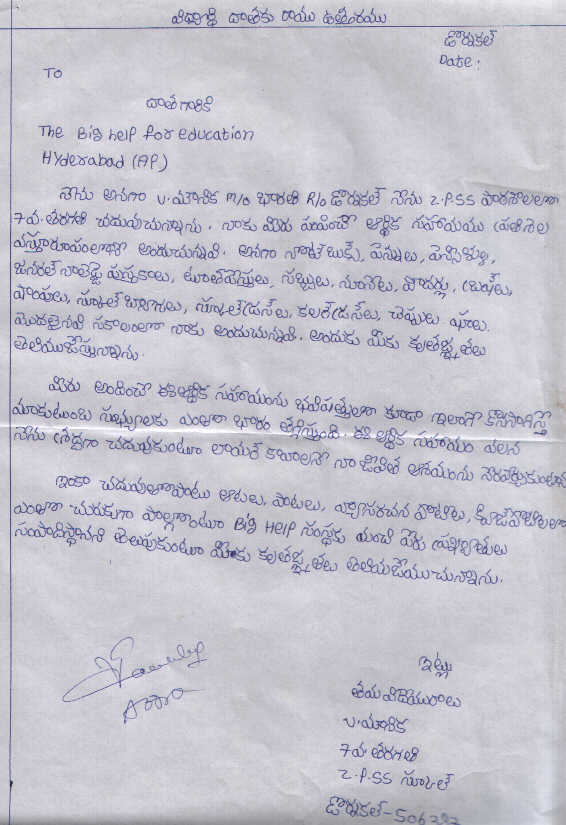 విద్యార్థి దాతకు రాయు ఉత్తరము
డోర్నకల్
Date:
To
దాతగారికి
The Big help for education
Hyderabad (AP)
నేను అనగా v.మౌనిక m/o భారతి R/o డోర్నకల్ నేను Z.P.SS పాఠశాలలో
7వ.తరగతి చదువుచున్నాను. నాకు మీరు పంపించే ఆర్థిక సహాయము ప్రతినెల
వస్తురూపంలాగా అందుచున్నవి. అనగా నోట్ బుక్స్, పెన్నులు, పెన్సిళ్ళు,
జనరల్ నాలెడ్జి పుస్తకాలు, టూత్ పేస్టులు, సబ్బులు, నూనెలు, పౌడర్లు, బ్రష్ లు,
షాంపులు, స్కూల్ బ్యాగులు, స్కూల్ డ్రస్ లు, కలర్ డ్రస్ లు, చెప్పులు షూలు.
మొదలైనవి సకాలంలో నాకు అందుచున్నవి. అందుకు మీకు కృతజ్ఞతలు
తెలియజేస్తున్నాను.
మీరు అందించే ఈ ఆర్థిక సహాయంను భవిషత్తులో కూడా ఇలాగే కొనసాగిస్తే
మాకుటుంబ సభ్యులకు ఎంతో భారం తగ్గిస్తుంది. ఈ ఆర్థిక సహాయం వలన
నేను శ్రద్ధగా చదువుకుంటూ లాయర్ కావాలనే నా జీవిత ఆశయంను నెరవేర్చుకుంటాను
ఇంకా చదువుతోపాటు ఆటలు, పాటలు, వ్యాసరచన పోటీలు, క్విజ్ పోటీలలో
ఎంతో చురుకుగా పాల్గొంటూ Big Help సంస్థకు మంచి పేరు ప్రఖ్యాతులు
సంపాదిస్తానని తెలుపుకుంటూ మీకు కృతజ్ఞతలు తెలియజేయుచున్నాను.
ఇట్లు
తమ విధేయురాలు
v.మౌనిక
7వ.తరగతి
Z.P.SS స్కూల్
డోర్నకల్-506